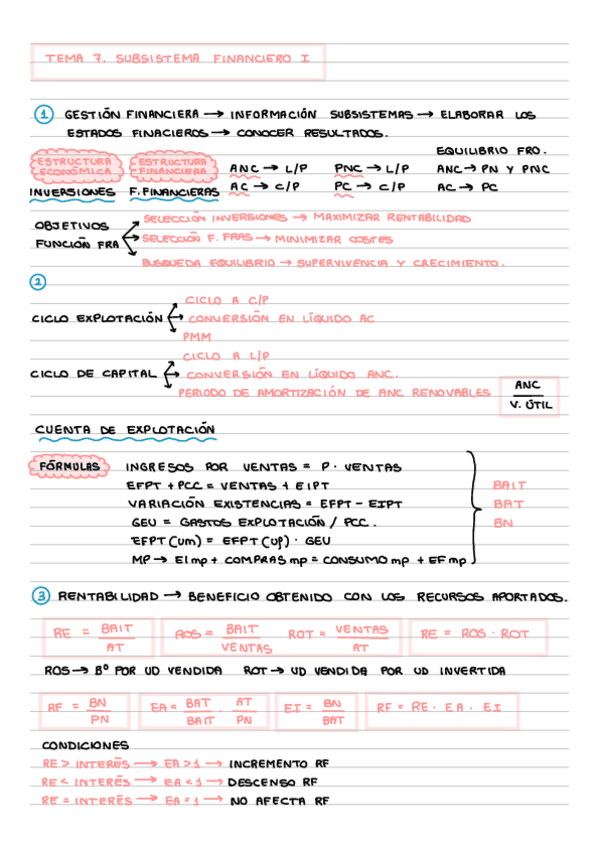 TEMA 7. SUBSISTEMA FINANCIERO I
1 GESTIÓN FINANCIERA → INFORMACIÓN SUBSISTEMAS → ELABORAR LOS
ESTADOS FINACIEROS → CONOCER RESULTADOS.
EQUILIBRIO FRO.
ESTRUCTURA ECONÓMICA
ESTRUCTURA FINANCIERA
ANC → L/P PNC → L/P ANC → PN Y PNC
INVERSIONES F. FINANCIERAS AC → C/P PC → C/P AC → PC
OBJETIVOS FUNCIÓN FRA
SELECCIÓN INVERSIONES → MAXIMIZAR RENTABILIDAD
SELECCIÓN F. FRAS → MINIMIZAR COSTES
BUSQUEDA EQUILIBRIO → SUPERVIVENCIA Y CRECIMIENTO.
2
CICLO A C/P
CICLO EXPLOTACIÓN CONVERSIÓN EN LÍQUIDO AC
PMM
CICLO A L/P
CICLO DE CAPITAL CONVERSIÓN EN LÍQUIDO ANC.
PERIODO DE AMORTIZACIÓN DE ANC RENOVABLES
ANC
V. ÚTIL
CUENTA DE EXPLOTACIÓN
FÓRMULAS INGRESOS POR VENTAS = P · VENTAS
EFPT + PCC = VENTAS + EIPT BAIT
VARIACIÓN EXISTENCIAS = EFPT - EIPT BAT
GEU = GASTOS EXPLOTACIÓN / PCC. BN
EFPT (um) = EFPT (up) · GEU
MP → EI mp + COMPRAS mp = CONSUMO mp + EF mp
3 RENTABILIDAD → BENEFICIO OBTENIDO CON LOS RECURSOS APORTADOS.
RE = BAIT / AT ROS = BAIT / VENTAS ROT = VENTAS / AT RE = ROS · ROT
ROS → Bº POR UD VENDIDA ROT → UD VENDIDA POR UD INVERTIDA
RF = BN / PN EA = BAT / BAIT · AT / PN EI = BN / BAT RF = RE · EA · EI
CONDICIONES
RE > INTERÉS → EA > 1 → INCREMENTO RF
RE < INTERÉS → EA < 1 → DESCENSO RF
RE = INTERÉS → EA = 1 → NO AFECTA RF